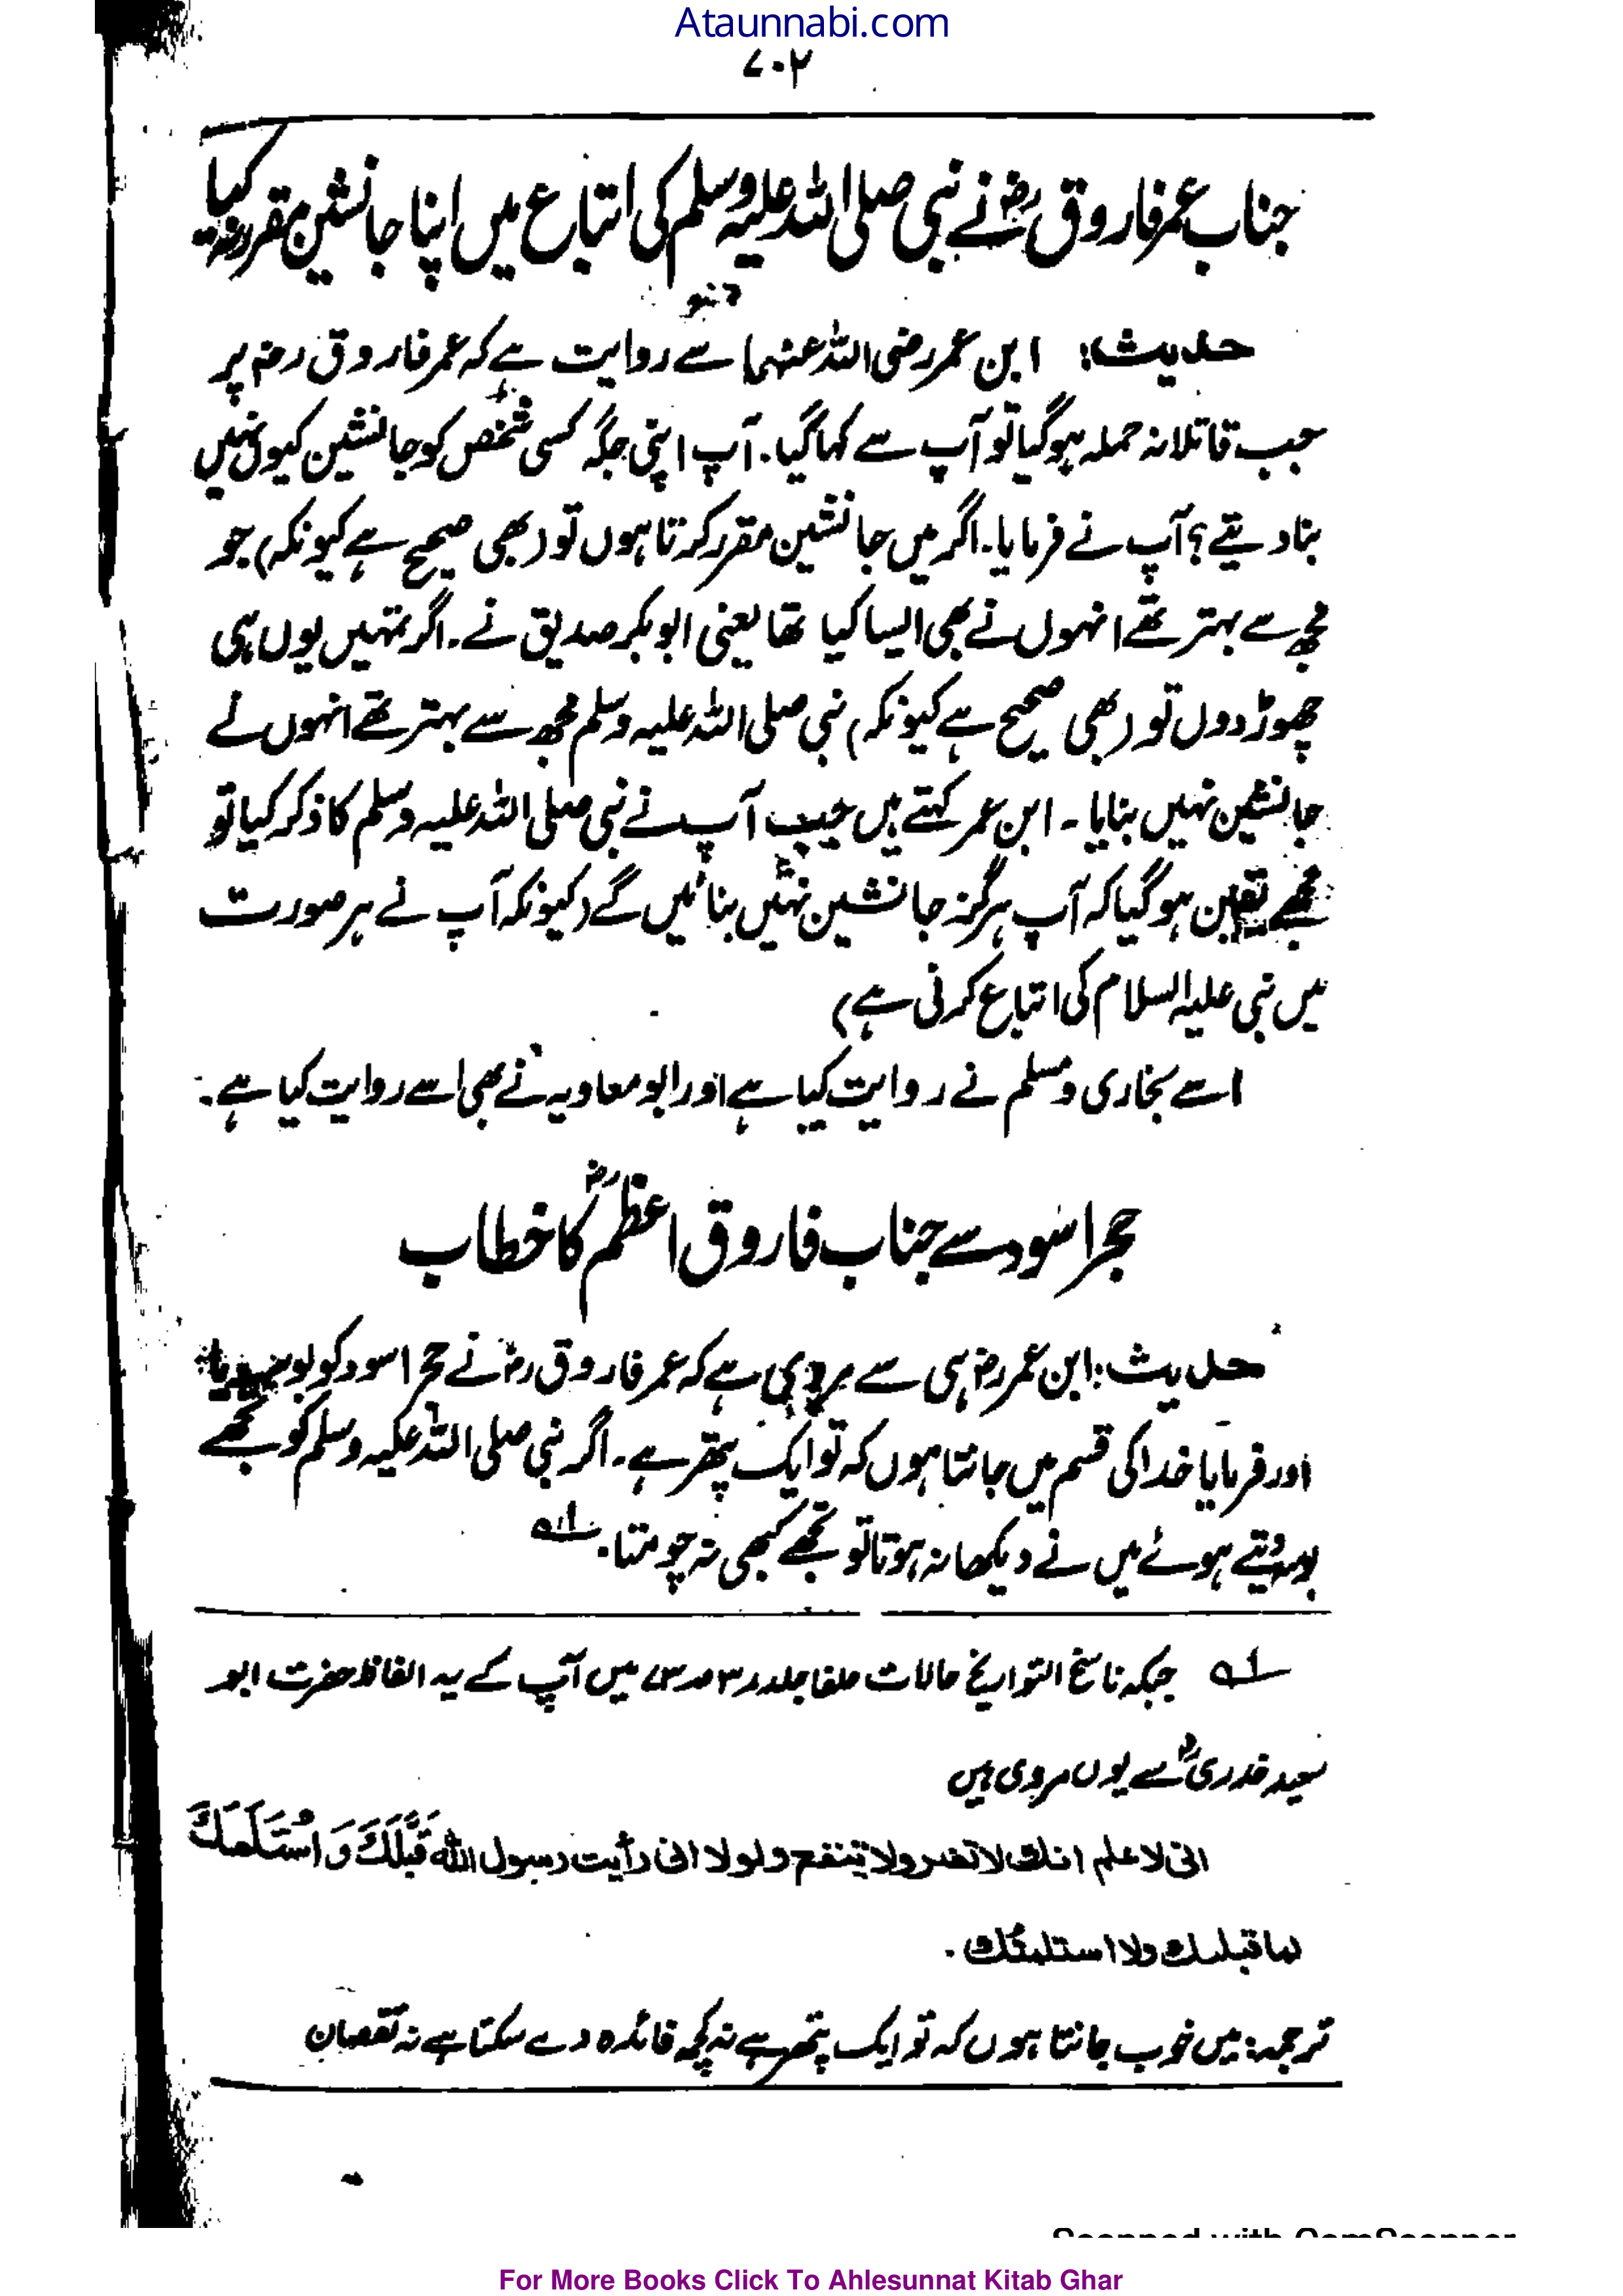 Ataunnabi.com
۷۰۲
جناب عمر فاروق رضؓ نے نبی صلی اللہ علیہ وسلم کی اتباع میں اپنا جانشین مقرر نہ کیا
حدیث: ابن عمر رضی اللہ عنہما سے روایت ہے کہ عمر فاروق رضؓ پر
جب قاتلانہ حملہ ہوگیا تو آپ سے کہا گیا۔ آپ اپنی جگہ کسی شخص کو جانشین کیوں نہیں
بنا دیتے؟ آپ نے فرمایا۔ اگر میں جانشین مقرر کرتا ہوں تو (بھی صحیح ہے کیونکہ) جو
مجھ سے بہتر تھے انہوں نے بھی ایسا کیا تھا یعنی ابوبکر صدیق نے۔ اگر تمہیں یوں ہی
چھوڑ دوں تو (بھی صحیح ہے کیونکہ) نبی صلی اللہ علیہ وسلم مجھ سے بہتر تھے انہوں نے
جانشین نہیں بنایا۔ ابن عمر کہتے ہیں جب آپ نے نبی صلی اللہ علیہ وسلم کا ذکر کیا تو
مجھے یقین ہوگیا کہ آپ ہرگز جانشین نہیں بنائیں گے (کیونکہ آپ نے ہر صورت
میں نبی علیہ السلام کی اتباع کرنی ہے)
اسے بخاری و مسلم نے روایت کیا ہے اور ابو معاویہ نے بھی اسے روایت کیا ہے۔
حجر اسود سے جناب فاروق اعظمؓ کا خطاب
حدیث: ابن عمر رضؓ ہی سے مروی ہے کہ عمر فاروق رضؓ نے حجر اسود کو بوسہ دیا
اور فرمایا خدا کی قسم میں جانتا ہوں کہ تو ایک پتھر ہے۔ اگر نبی صلی اللہ علیہ وسلم کو تجھے
بوسہ دیتے ہوئے میں نے دیکھا نہ ہوتا تو تجھے کبھی نہ چومتا۔ لہ
لہ جبکہ ناسخ التواریخ حالات خلفا جلد ۳ میں آپ کے یہ الفاظ حضرت ابو
سعید خدریؓ سے یوں مروی ہیں
انی لا علم انك لا تضر ولا تنفع ولولا انی رأیت رسول اللہ قَبَّلَكَ وَاسْتَلَمَكَ
لما قبلتك ولا استلمتُك۔
ترجمہ: میں خوب جانتا ہوں کہ تو ایک پتھر ہے نہ کچھ فائدہ دے سکتا ہے نہ نقصان
For More Books Click To Ahlesunnat Kitab Ghar